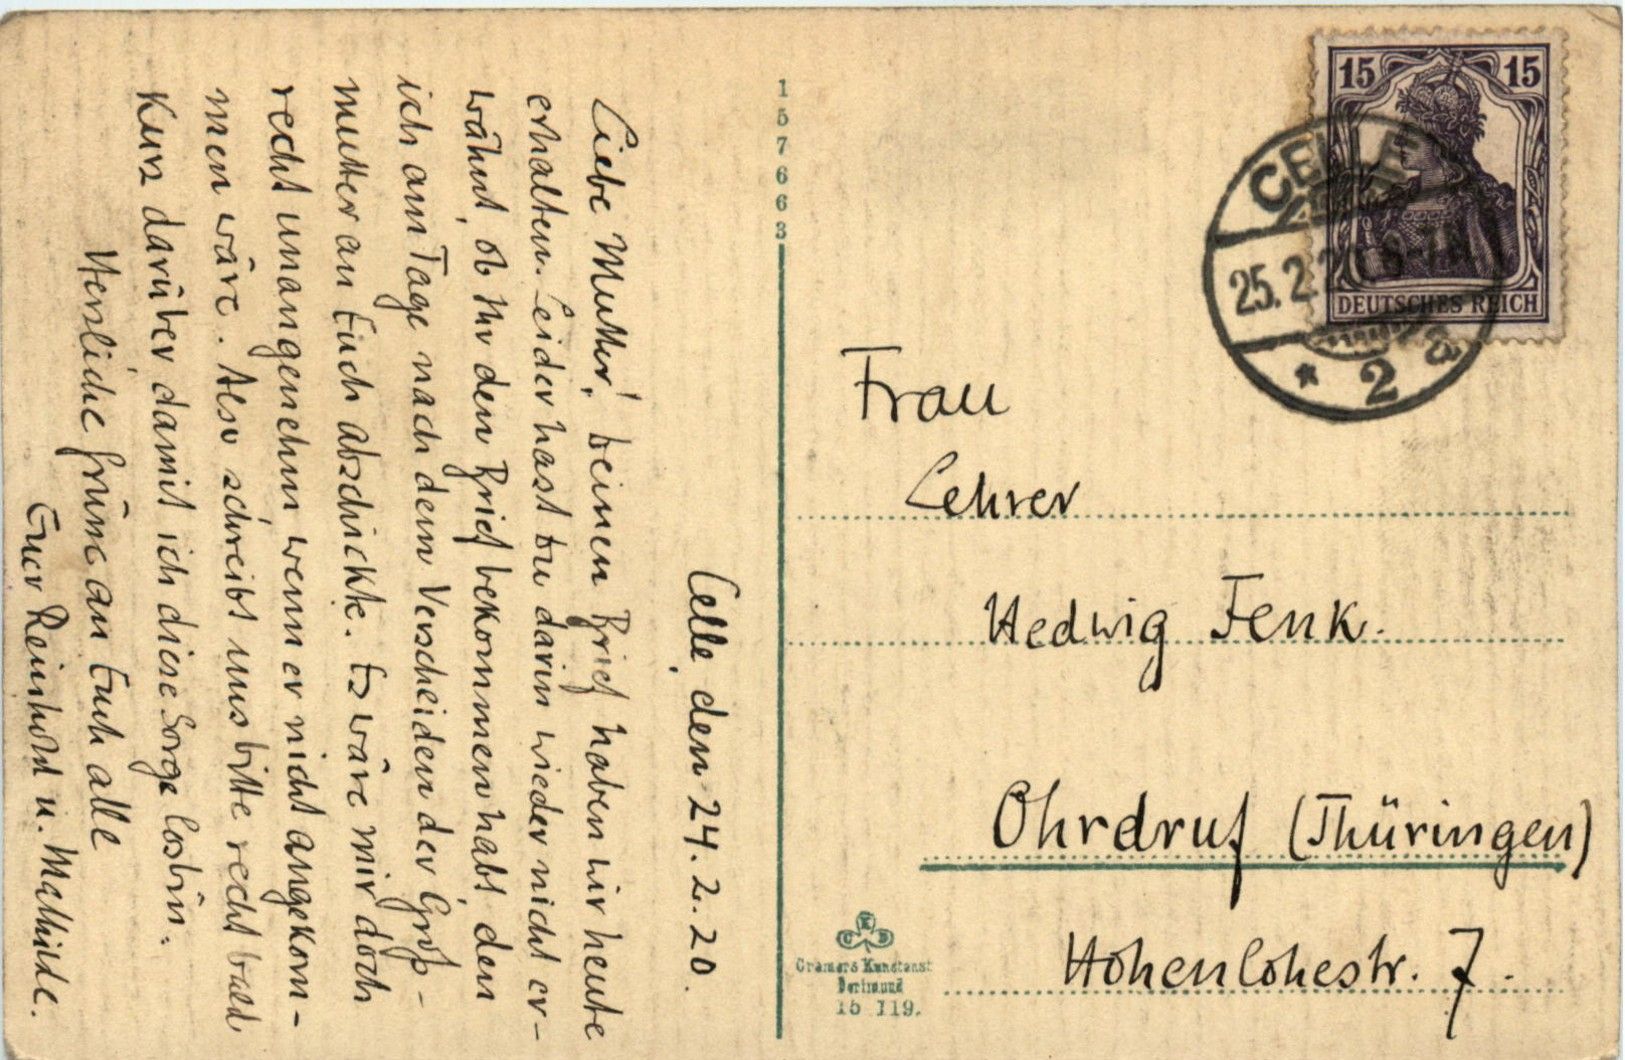 Celle, den 24.2.20.
Liebe Mutter! Deinen Brief haben wir heute
erhalten. Leider hast Du darin wieder nicht er-
wähnt, ob Ihr den Brief bekommen habt, den
ich am Tage nach dem Verscheiden der Groß-
mutter an Euch abschickte. Es wäre mir doch
recht unangenehm, wenn er nicht angekom-
men wäre. Also schreibt uns bitte recht bald
kurz darüber damit ich diese Sorge los bin.
Herzliche Grüße an Euch alle
Euer Reinhold u. Mathilde.
157663
15 15
DEUTSCHES REICH
CELLE
25.2. 6-7N
* 2 a
Frau
Lehrer
Hedwig Fenk.
Ohrdruf (Thüringen)
Hohenlohestr. 7.
CKD
Cramers Kunstanst
Dortmund
15 119.